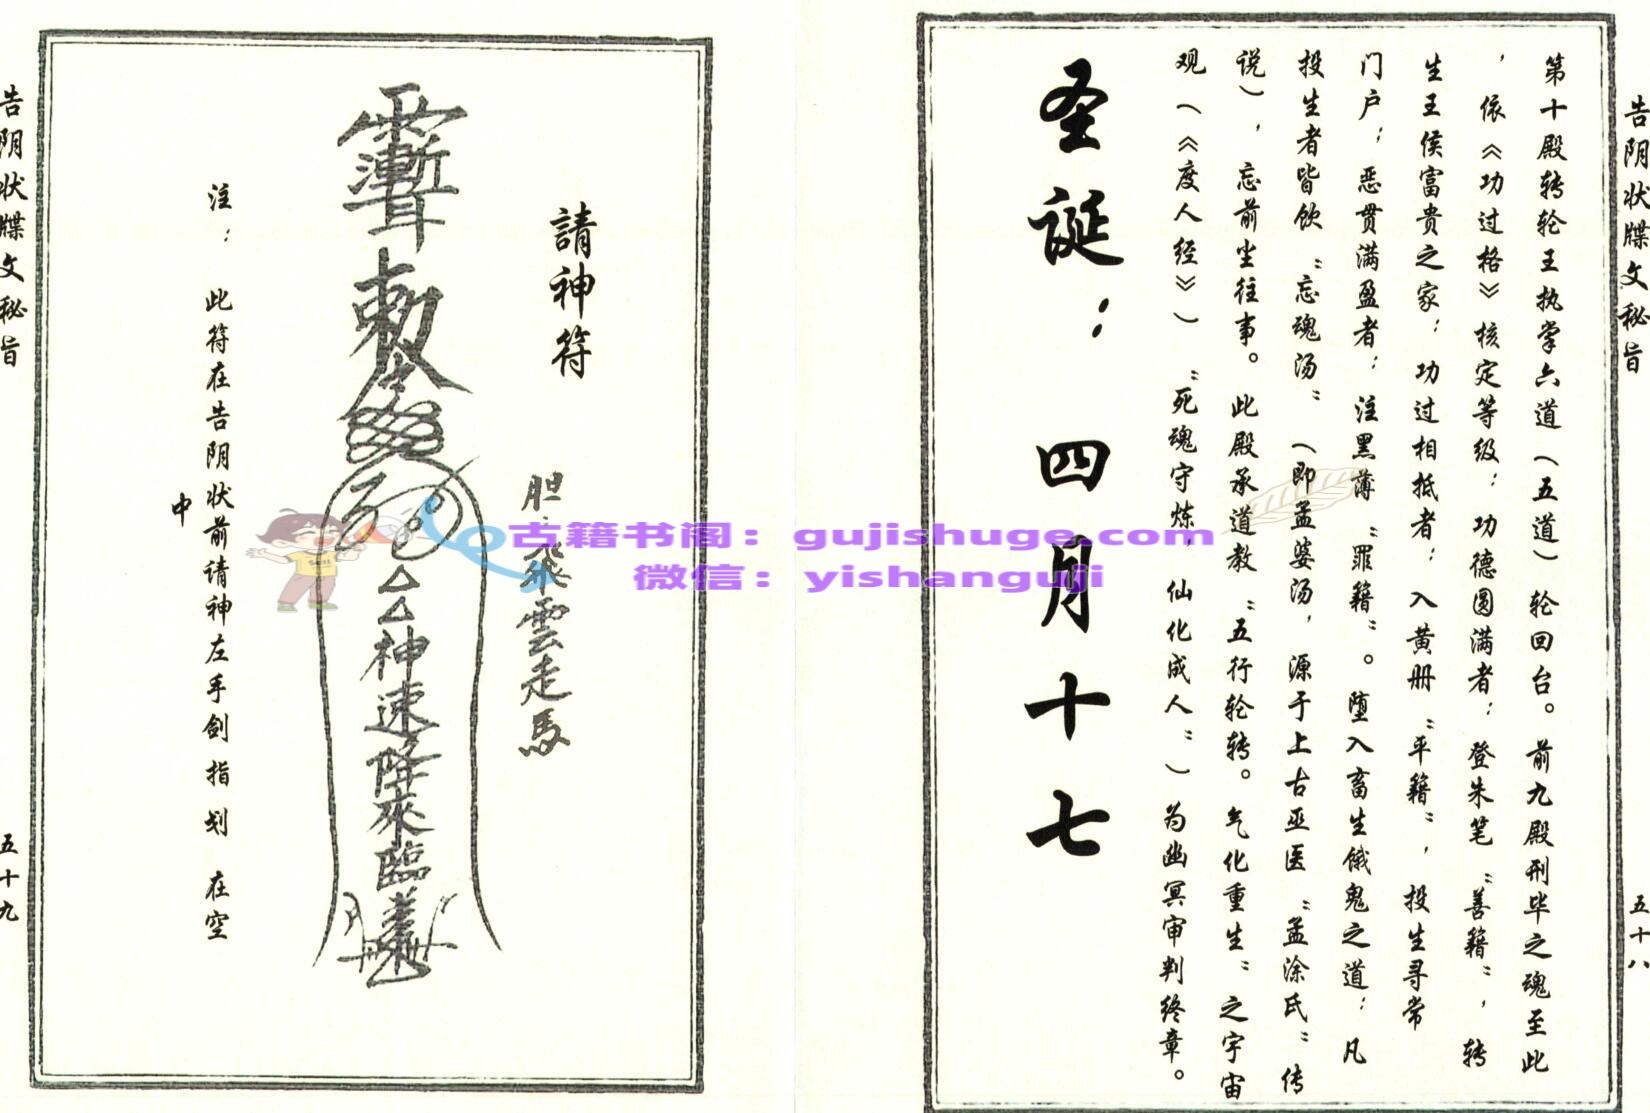 告阴状牒文秘旨
五十八
第十殿转轮王执掌六道（五道）轮回台。前九殿刑毕之魂至此
，依《功过格》核定等级：功德圆满者：登朱笔"善籍"，转
生王侯富贵之家：功过相抵者：入黄册"平籍"，投生寻常
门户；恶贯满盈者：注黑薄"罪籍"。堕入畜生饿鬼之道：凡
投生者皆饮"忘魂汤"（即孟婆汤，源于上古巫医"孟涂氏"传
说），忘前尘往事。此殿承道教"五行轮转。气化重生"之宇宙
观（《度人经》）"死魂守炼，仙化成人"）为幽冥审判终章。
圣诞：四月十七
請神符
胆：飛雲走馬
敕令
△△神速降來臨
注：此符在告阴状前请神左手剑指划 在空
中
告阴状牒文秘旨
五十九
古籍书阁：gujishuge.com
微信：yishanguji